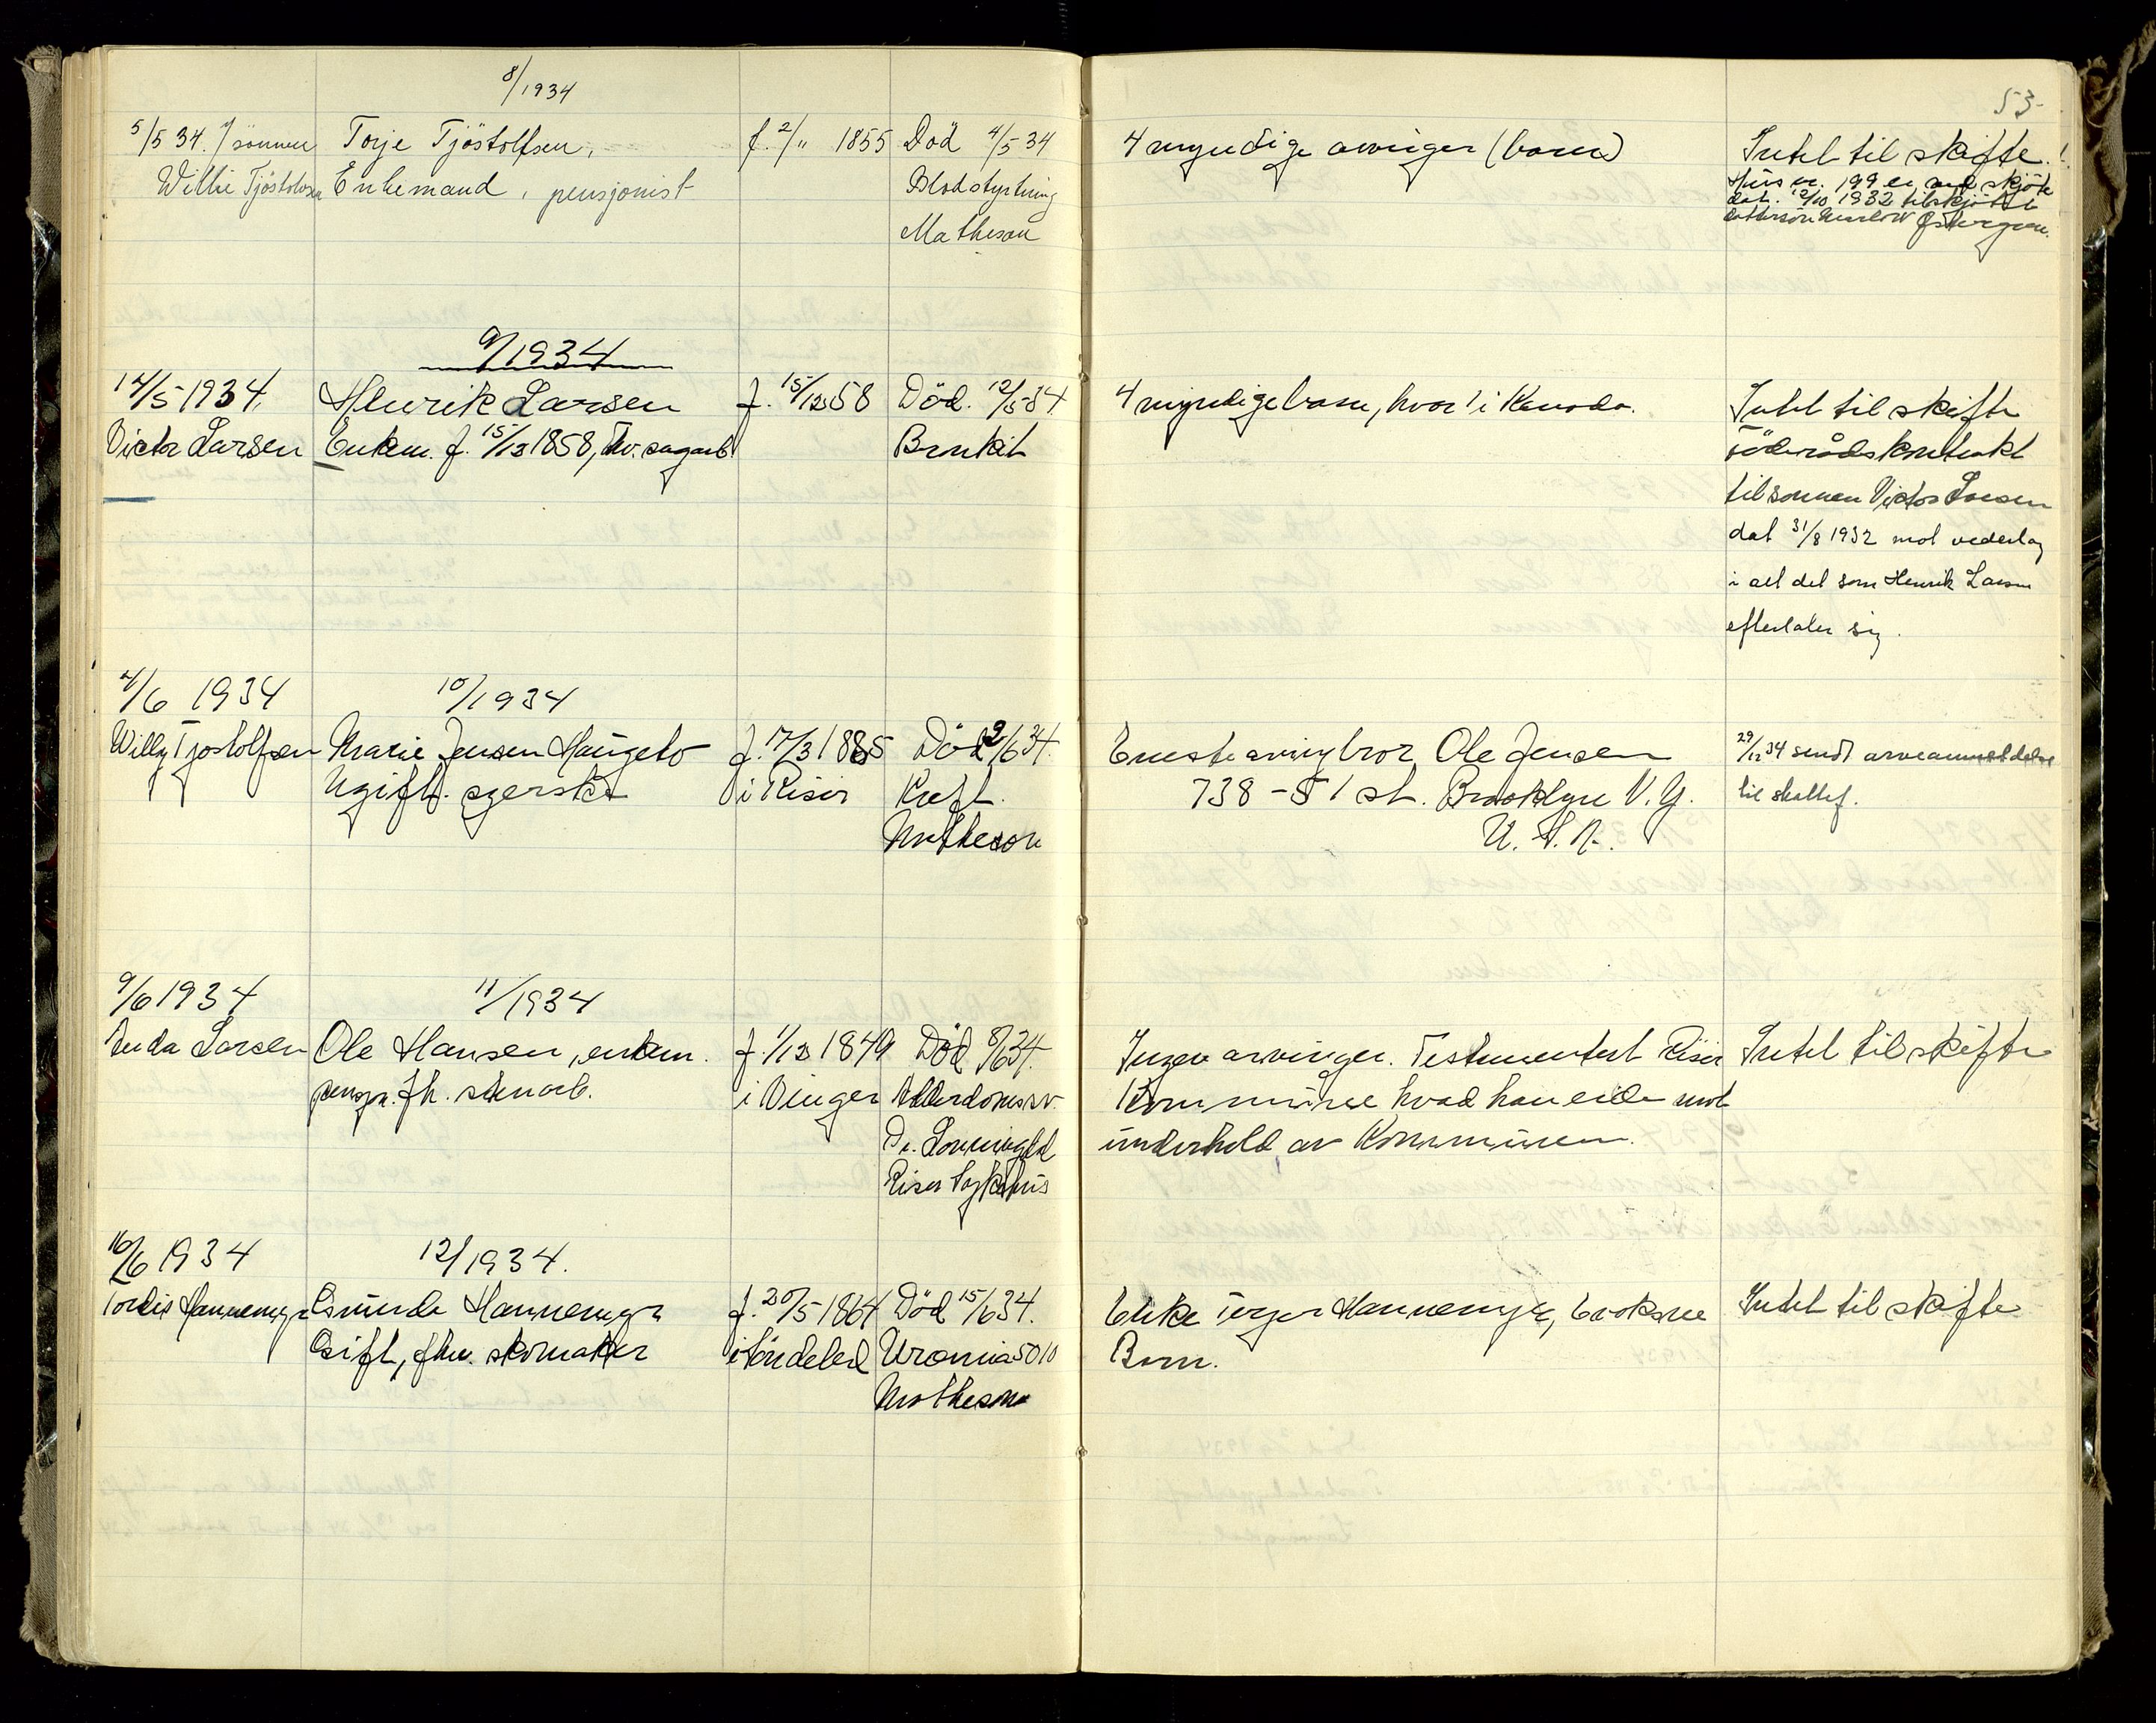 53
8/1934
5/5 34. v/ sönnen Torje Tjöstolfsen, f. 2/11 1855 Död 4/5 34 4 myndige arvinger (barn) Intet til skifte.
Willie Tjöstolvsen Enkemand, pensjonist Blodstyrtning Hus nr. 199 er ved skjöte
Matheson dat. 12/10 1932 tilskjöttet
9/1934
14/5 1934. Henrik Larsen f. 15/12 58 Död. 12/5 34 4 myndige barn, hvor 1 i Kanada. Intet til skifte
Victor Larsen Enkem. f. 15/12 1858, fhv. sagarb. Bronkit föderådskontrakt
til sönnen Victor Larsen
dat 31/8 1932 mot vederlag
i alt det som Henrik Larsen
efterlater sig.
4/6 1934 10/1934
Willy Tjostolfsen Marie Jensen Haugeto f. 17/3 1885 Död 2/6 34. Eneste arving bror Ole Jensen 29/12 34 sendt arveanmeldelse
Ugift. syerske i Risör Kreft. 738 - 51 st. Brooklyn N. Y. til skattef.
Matheson U. S. A.
9/6 1934 11/1934
Larsen Ole Hansen, enkem. f. 1/12 1849 Död 8/6 34. Ingen arvinger. Testamentert Risör Intet til skifte
pensjon. fh. stenarb. i Vinger Alderdomssv. Kommune hvad han eide mot
Dr. underhold av Kommunen.
Risör Sykehus
16/6 1934 12/1934.
Tordis Hannemyr Hannemyr f. 20/5 1864 Död 15/6 34. Enke Hannemyr, 6 voksne Intet til skifte
Gift, fhv. skomaker i Söndeled Uremia Barn.
Matheson